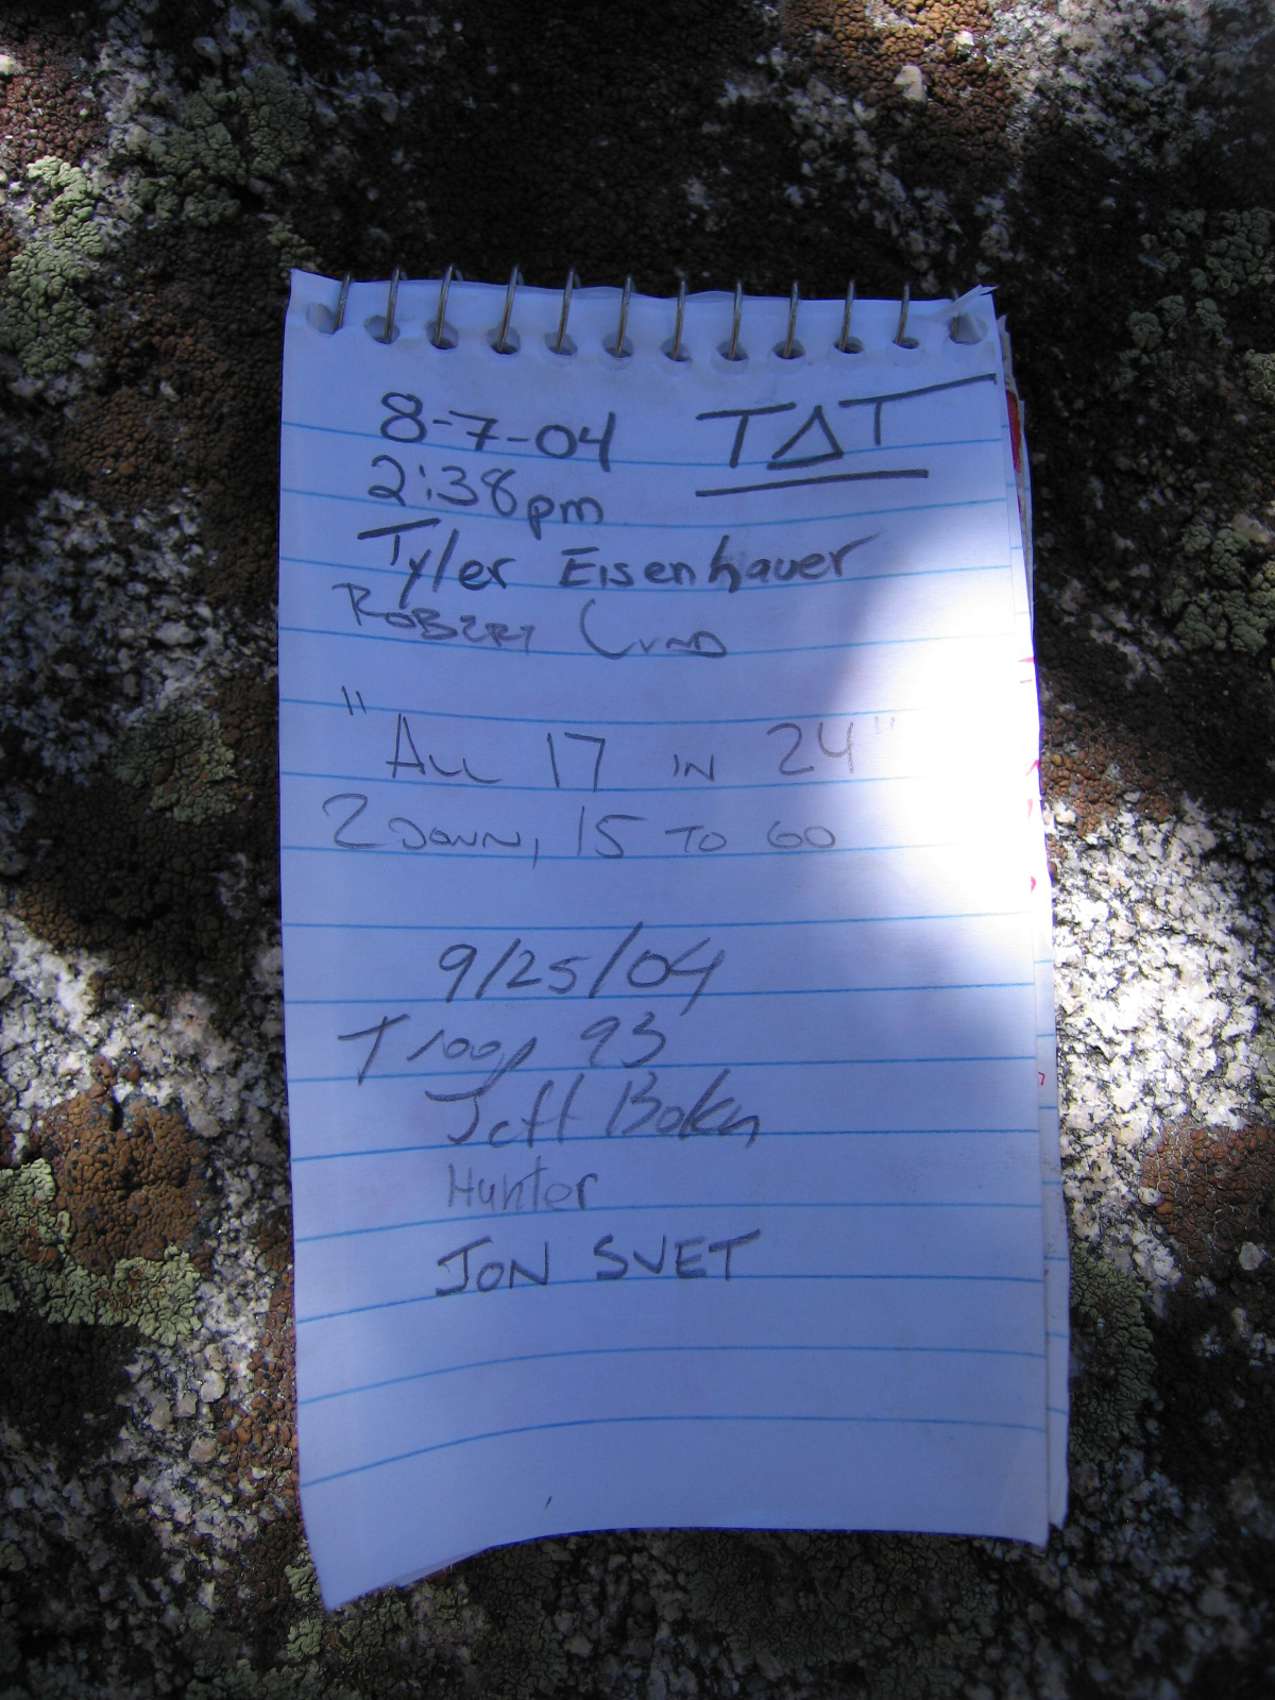 8-7-04 TΔT
2:38pm
Tyler Eisenhauer
ROBERT
"ALL 17 IN 24"
2 DOWN, 15 TO GO
9/25/04
Troop 93
Jeff
Hunter
JON SVET